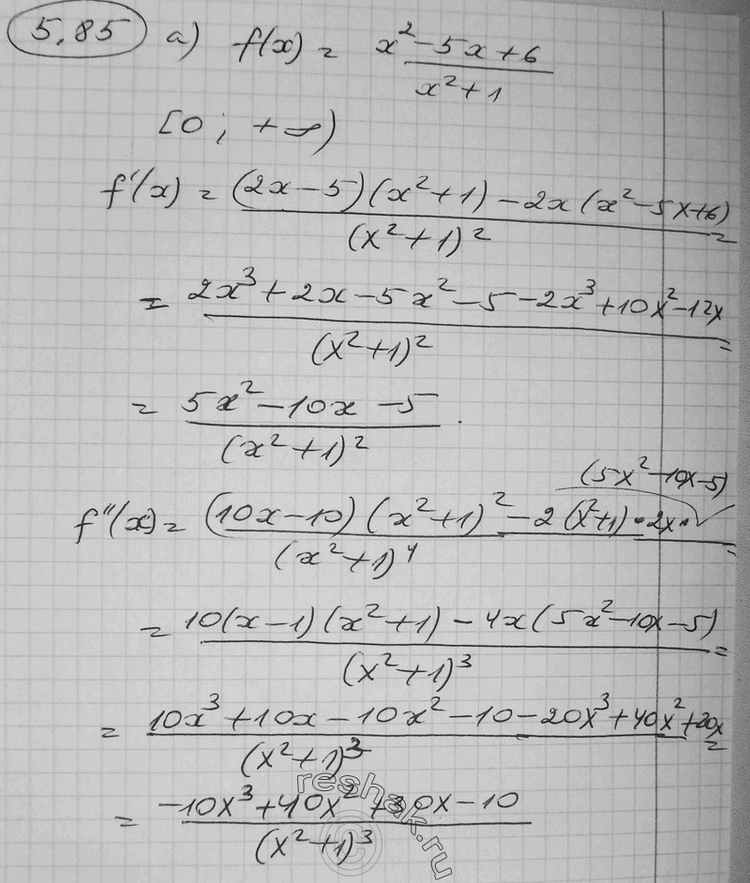 5.85 а) f(x) = (x² - 5x + 6)/(x² + 1)
[0; +∞)
f'(x) = ((2x - 5)(x² + 1) - 2x(x² - 5x + 6))/(x² + 1)² =
= (2x³ + 2x - 5x² - 5 - 2x³ + 10x² - 12x)/(x² + 1)² =
= (5x² - 10x - 5)/(x² + 1)².
(5x² - 10x - 5)
f''(x) = ((10x - 10)(x² + 1)² - 2(x² + 1)·2x· ✓)/(x² + 1)⁴ =
= (10(x - 1)(x² + 1) - 4x(5x² - 10x - 5))/(x² + 1)³ =
= (10x³ + 10x - 10x² - 10 - 20x³ + 40x² + 20x)/(x² + 1)³ =
= (-10x³ + 40x² + 30x - 10)/(x² + 1)³
reshak.ru